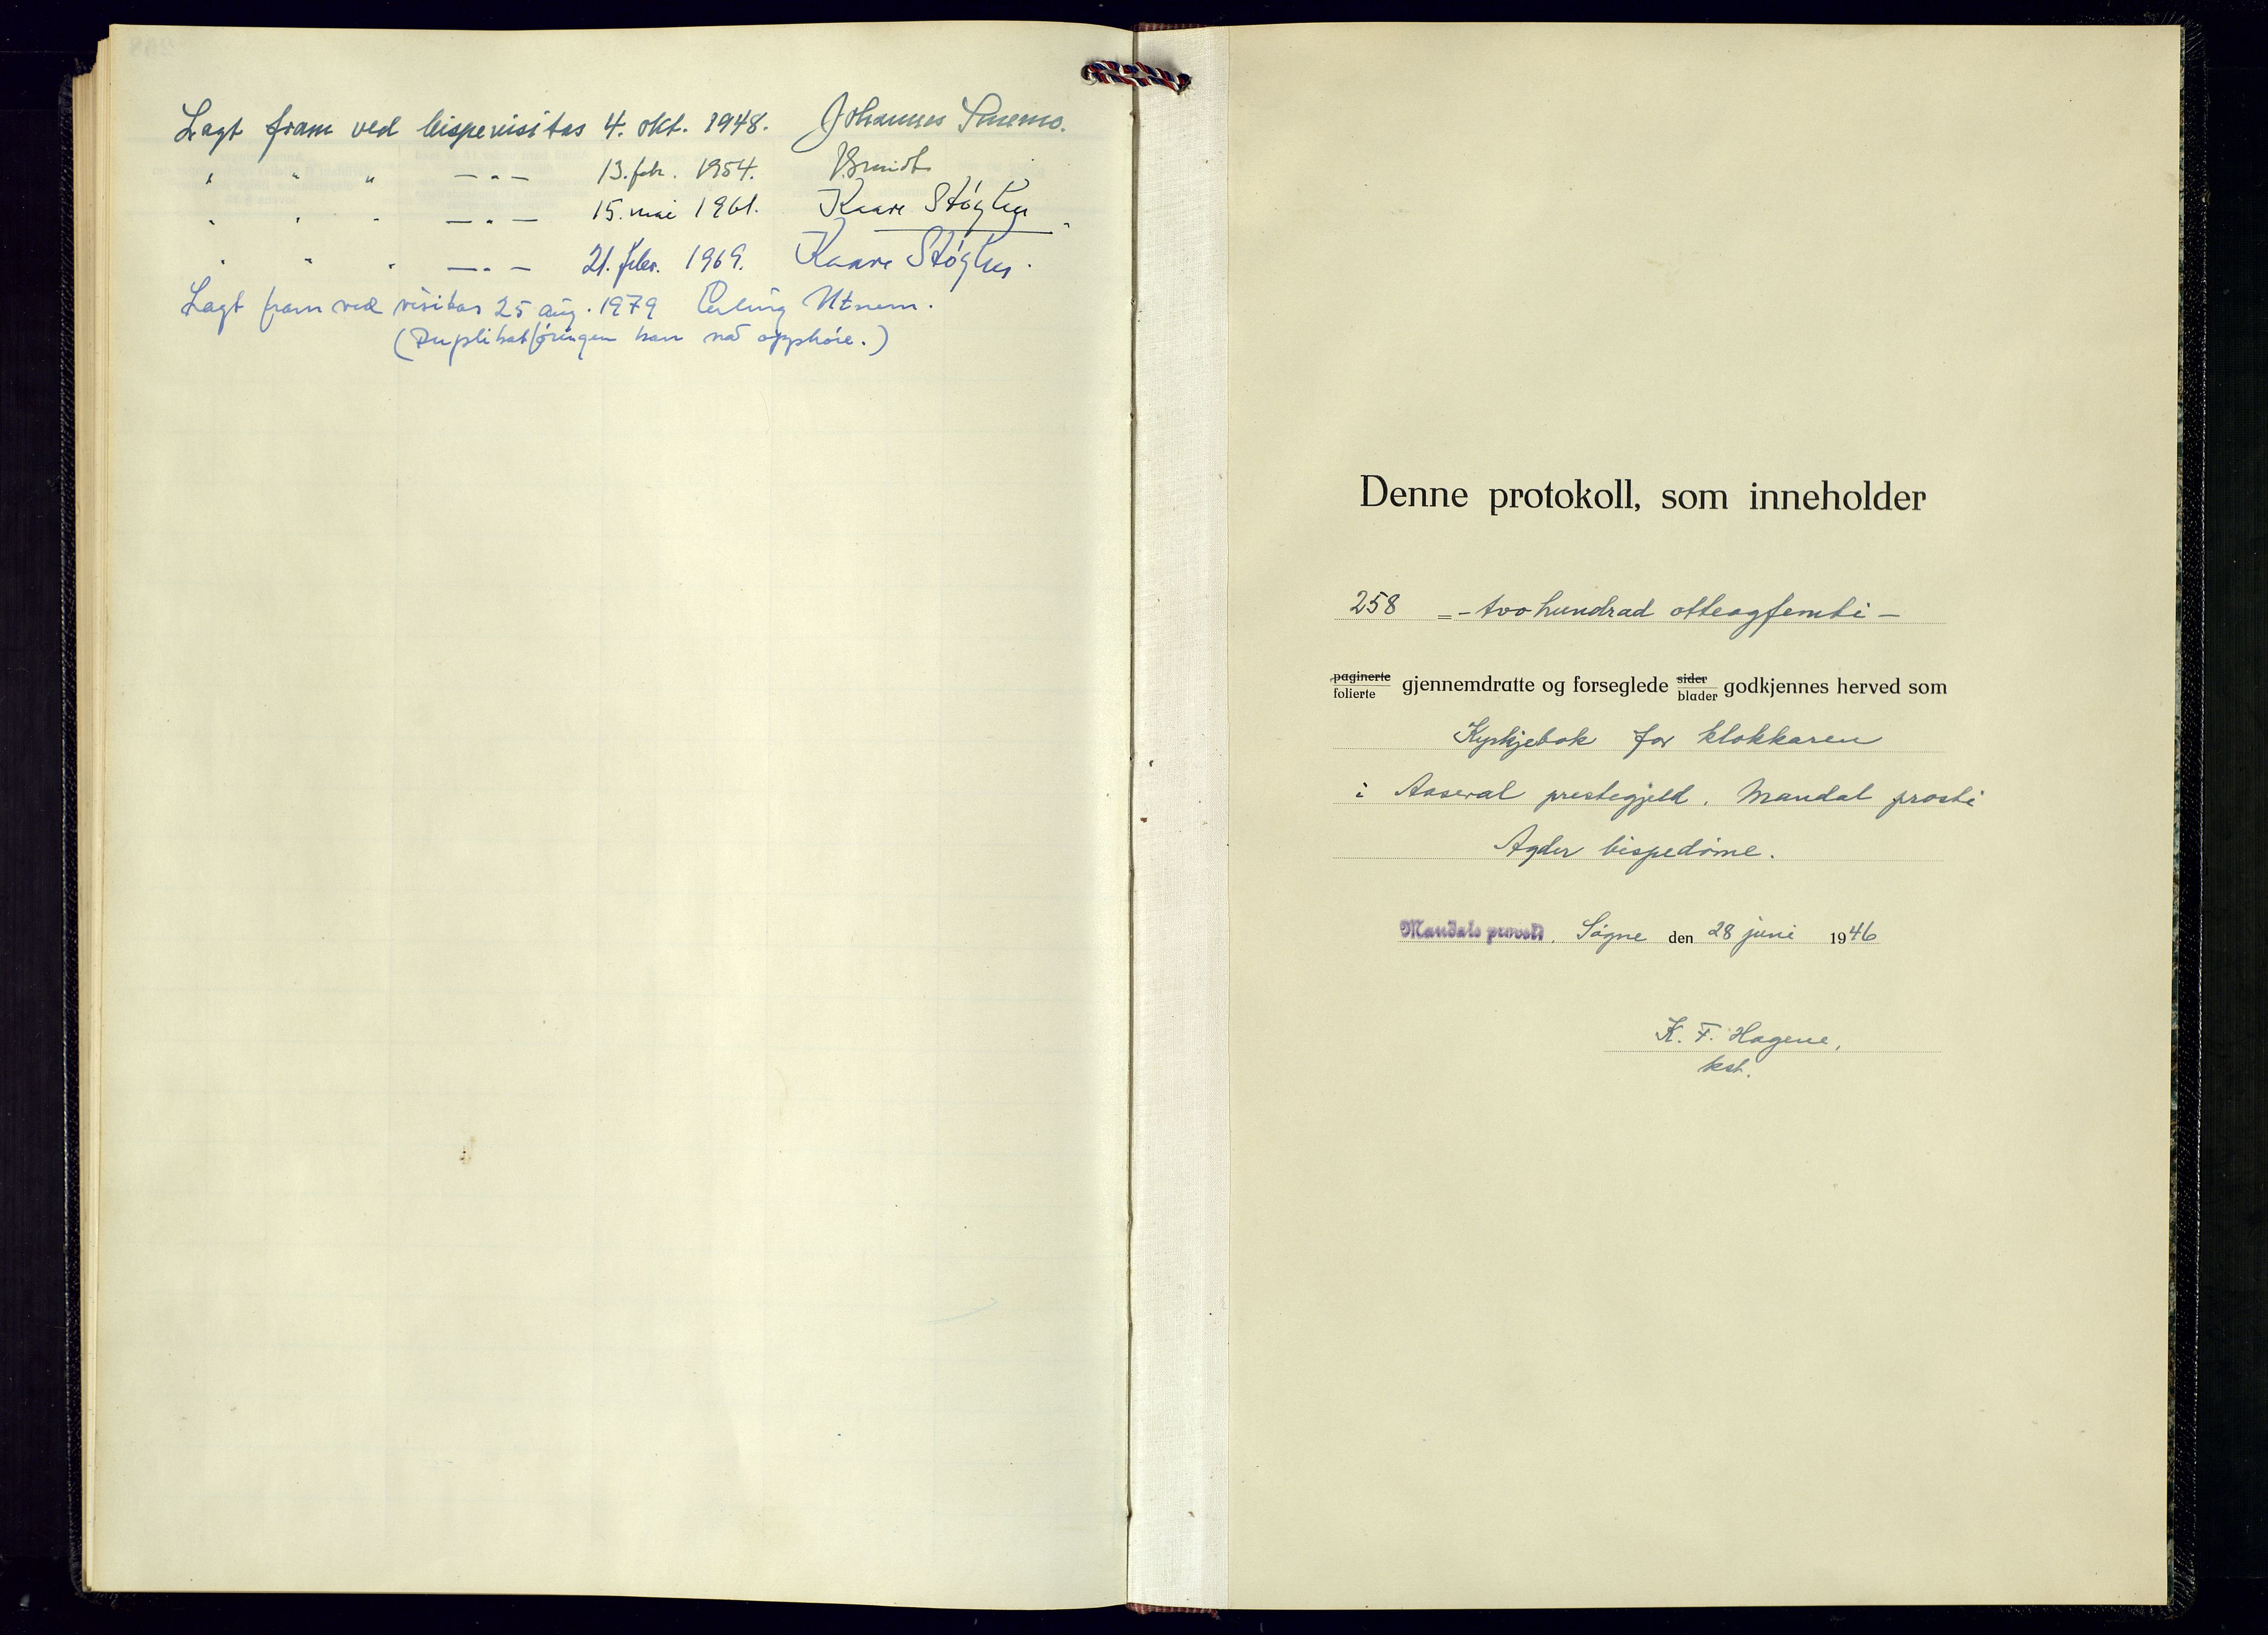 Lagt fram ved bispevisitas 4. okt. 1948. Johannes Smemo.
" " " — " — 13. feb. 1954. J. Smidt
" " " — " — 15. mai 1961. Kaare Støylen
" " " — " — 21. febr. 1969. Kaare Støylen.
Lagt fram ved visitas 25 aug. 1979 Erling Utnem.
(Duplikatføringen kan nå opphøre.)
Denne protokoll, som inneholder
258 =- tvo hundrad otteogfemti -
paginerte
folierte gjennemdratte og forseglede sider
blader godkjennes herved som
Kyrkjebok for klokkaren
i Aaseral prestegjeld, Mandal prosti
Agder bispedøme.
Mandals provsti. Søgne den 28 juni 1946
K. F. Hagene,
kst.